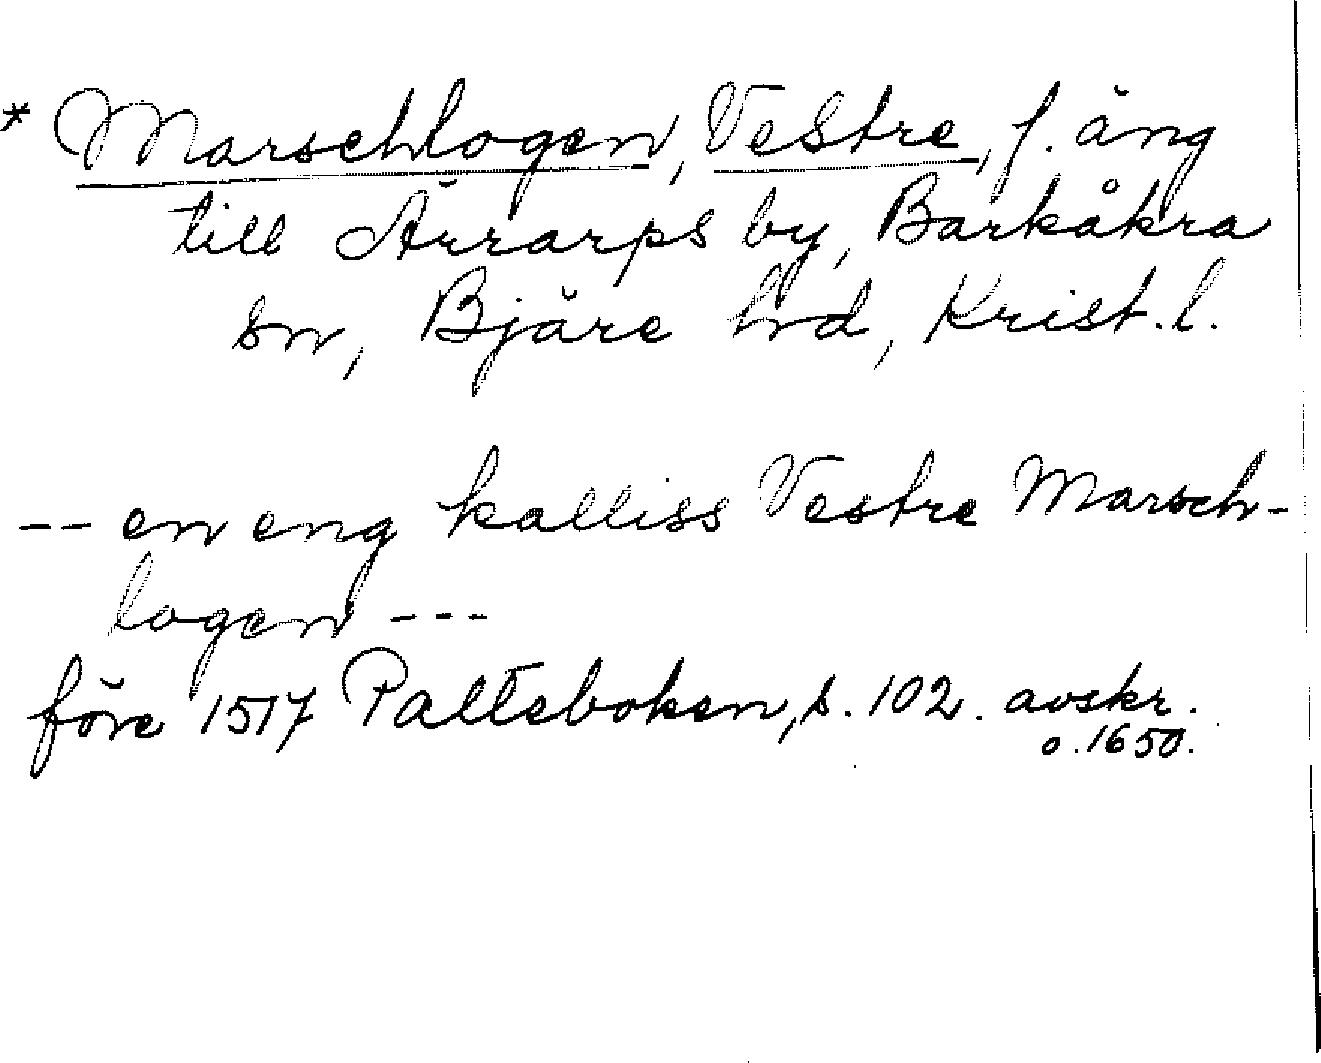 * Marschlogen, Vestre, f. äng
till Ärrarps by, Barkåkra
sn, Bjäre hd, Krist. l.
-- en eng kalliss Vestre Marsch-
logen ---
före 1517 Palteboken, s. 102. avskr.
o. 1650.